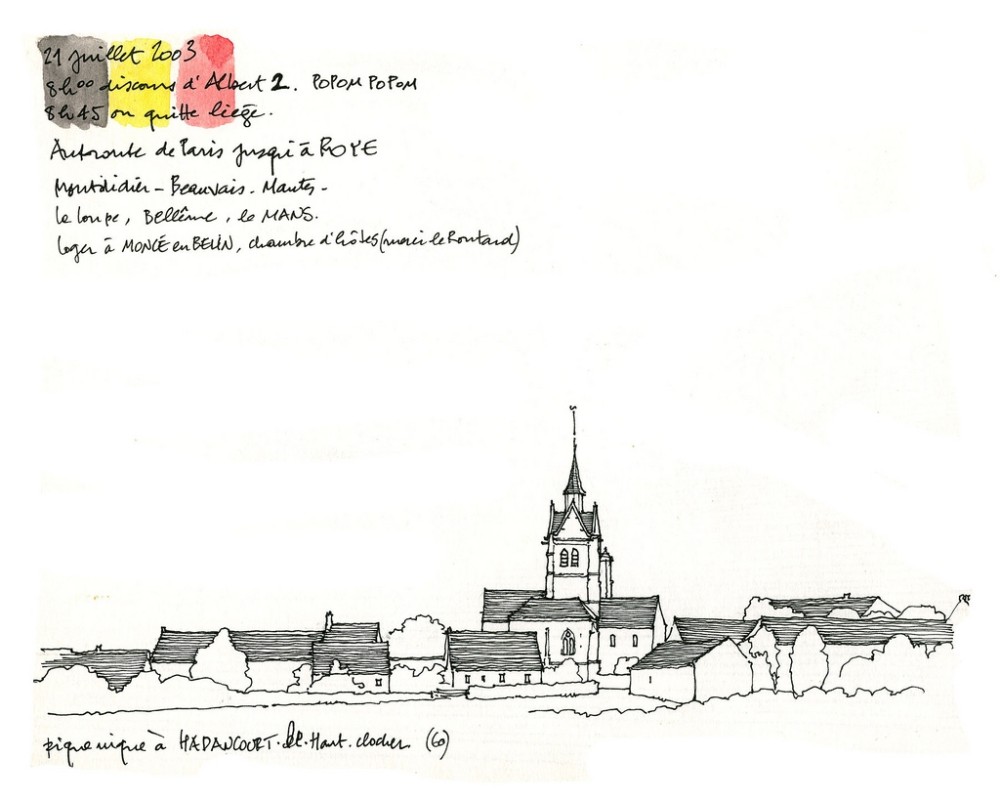 21 juillet 2003
8h00 discours d'Albert 2. POPOM POPOM
8h45 on quitte liège.
Autoroute de Paris jusqu'à ROYE
Montdidier - Beauvais - Mantes -
la loupe, Bellême, le MANS.
loger à MONCÉ en BELIN, chambre d'hôtes (merci le Routard)
pique nique à HADANCOURT. le. Haut. clocher (60)